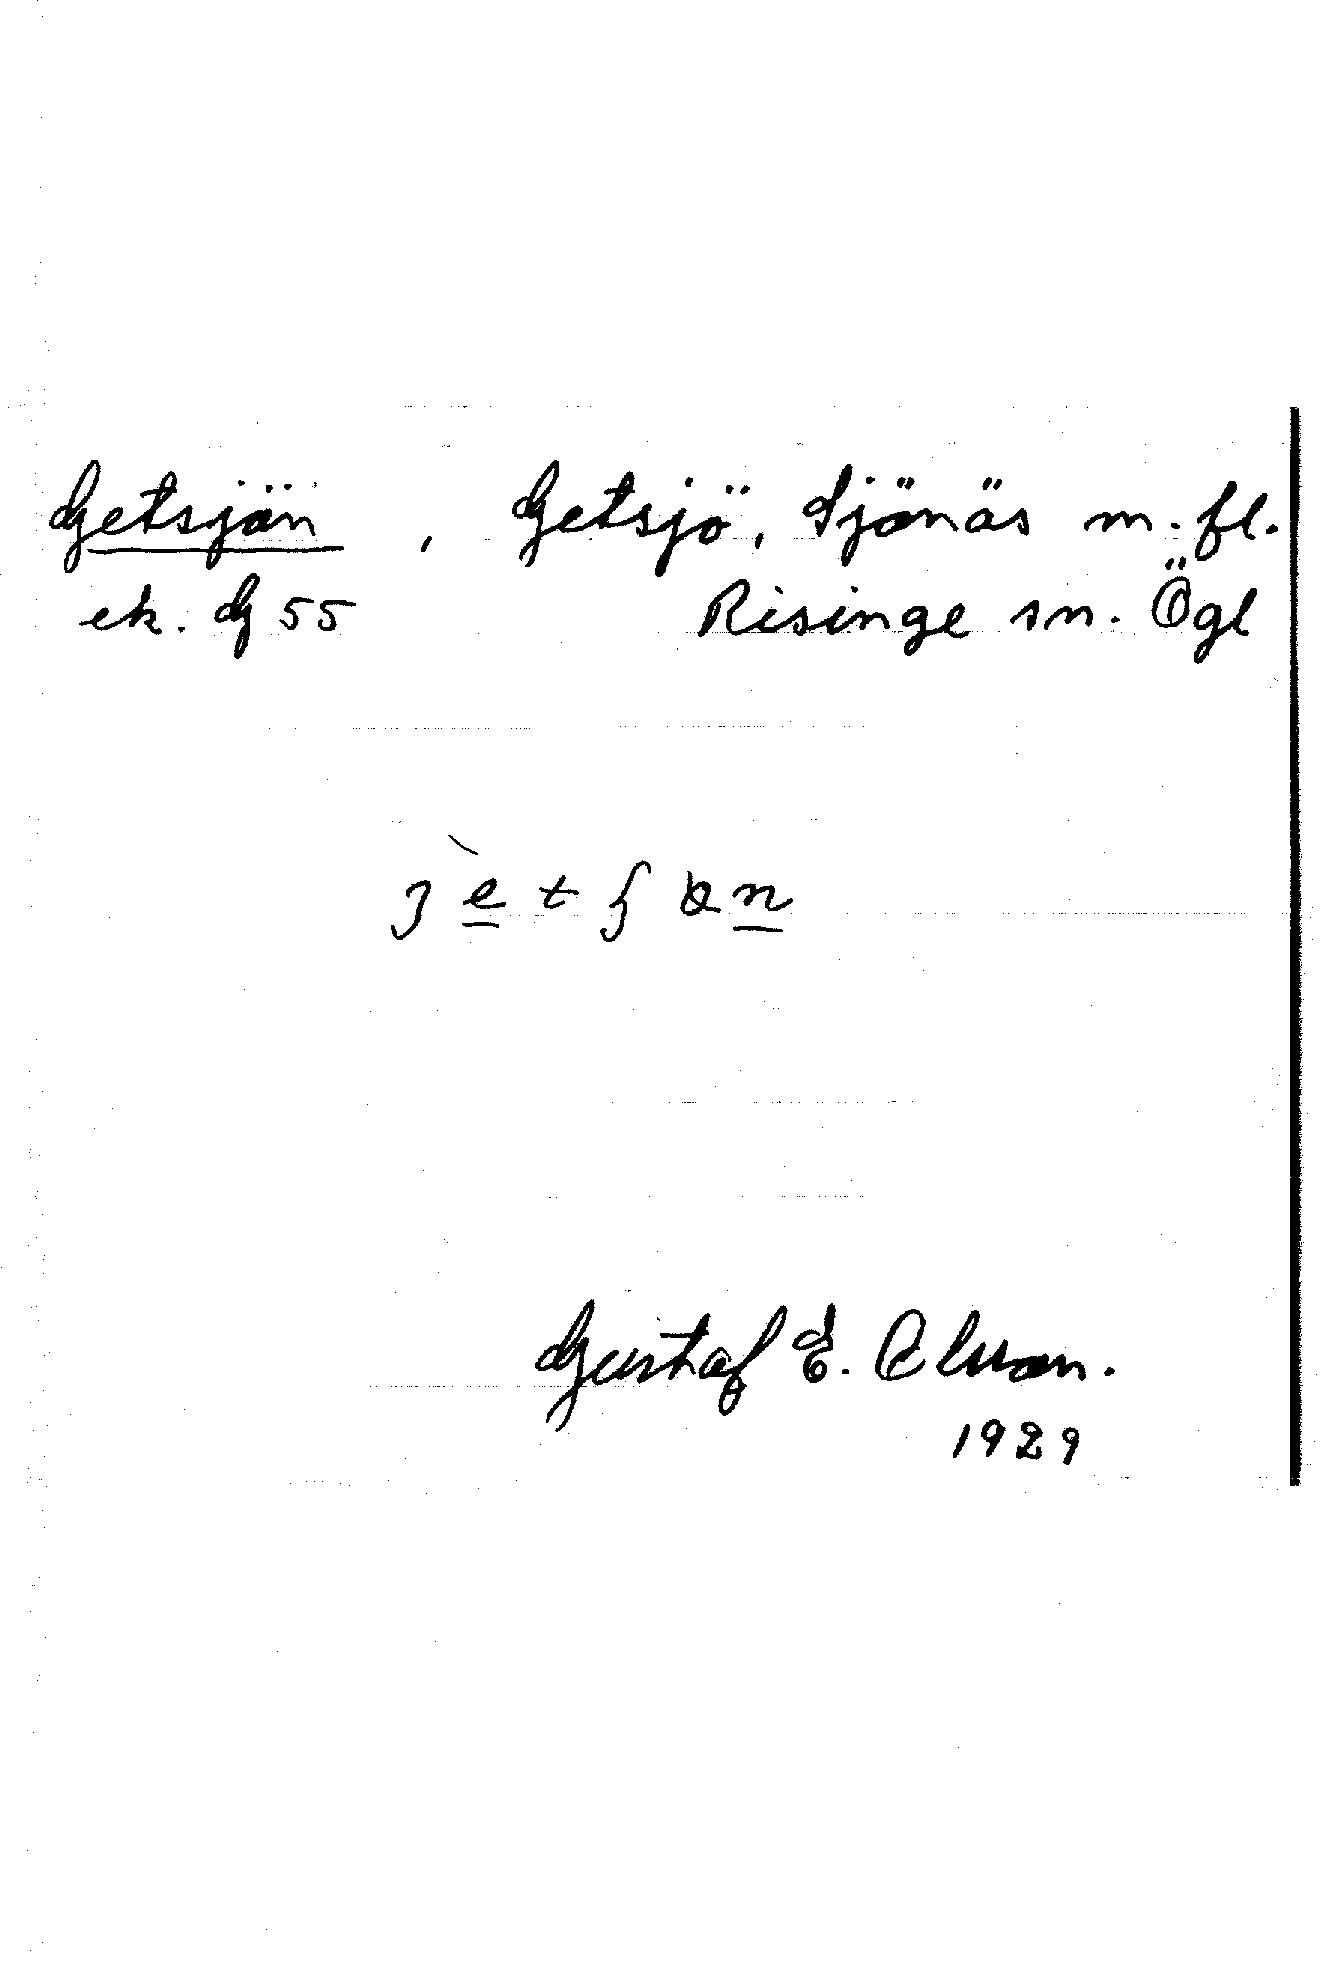 Getsjön, Getsjö, Sjönäs m.fl.
ek. G 55 Risinge sn. Ögl
Gustaf E.
1929